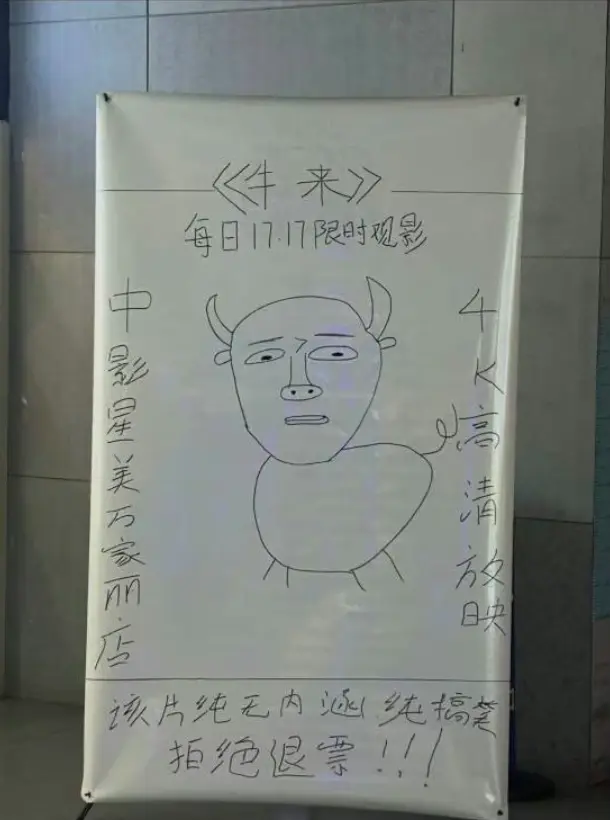 《牛来》
每日17.17限时观影
中影星美万家丽店
4K高清放映
该片纯无内涵 纯搞笑
拒绝退票!!!